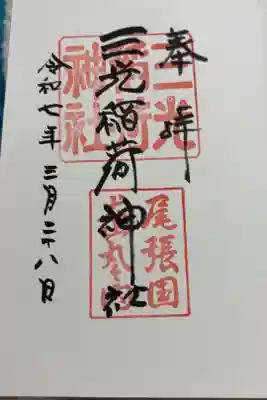 奉拝
三光稲荷神社
令和七年 三月二十八日
三光
稲荷
神社
尾張国